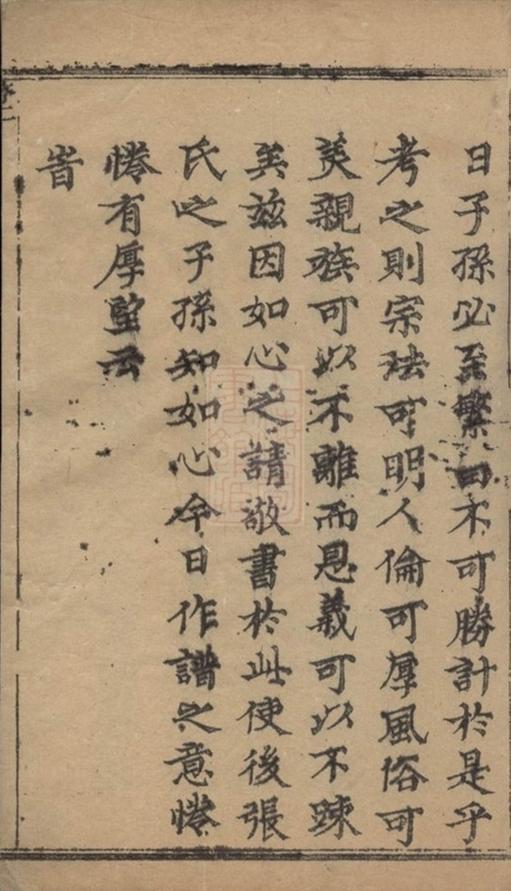 日子孫必至繁而不可勝計於是乎
考之則宗法可明人倫可厚風俗可
美親族可以不離而恩義可以不踈
矣兹因如心之請敬書於此使後張
氏之子孫知如心今日作譜之意惓
惓有厚望云
旹